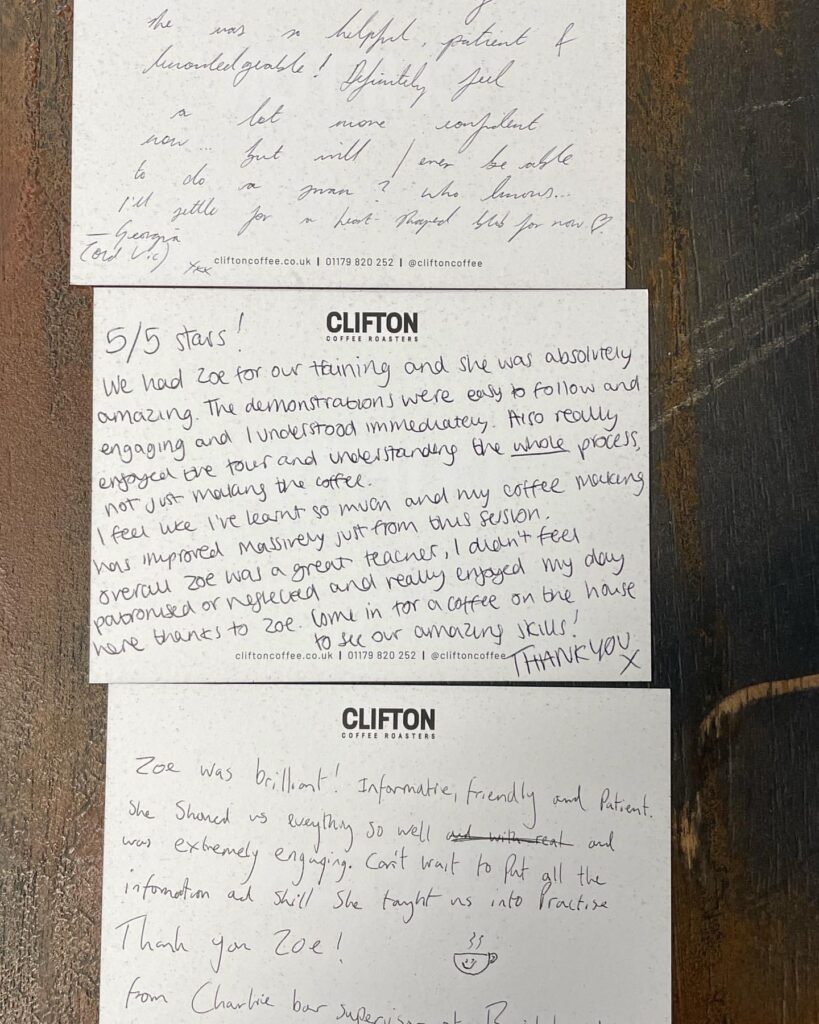 she was so helpful, patient &
knowledgeable! Definitely feel
a lot more confident
now... but will I ever be able
to do a swan? who knows...
I'll settle for a heart-shaped blob for now ♡
— Georgia
(Old Vic)
xxx
cliftoncoffee.co.uk | 01179 820 252 | @cliftoncoffee
CLIFTON
COFFEE ROASTERS
5/5 stars!
We had Zoe for our training and she was absolutely
amazing. The demonstrations were easy to follow and
engaging and I understood immediately. Also really
enjoyed the tour and understanding the whole process,
not just making the coffee.
I feel like I've learnt so much and my coffee making
has improved massively just from this session.
overall Zoe was a great teacher, I didn't feel
patronised or neglected and really enjoyed my day
here thanks to Zoe. Come in for a coffee on the house
to see our amazing skills!
THANK YOU
x
cliftoncoffee.co.uk | 01179 820 252 | @cliftoncoffee
CLIFTON
COFFEE ROASTERS
Zoe was brilliant! Informative, friendly and Patient.
She Showed us everything so well and
was extremely engaging. Can't wait to Put all the
information and skill She taught us into Practise
Thank you Zoe!
from Charlie bar supervisor at